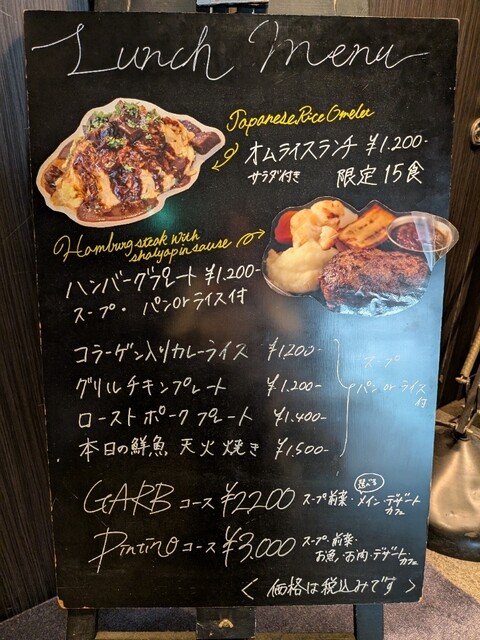 Lunch Menu
Japanese Rice Omelet
オムライスランチ ¥1.200-
サラダ付き 限定15食
Hamburg steak with
shalyapin sause
ハンバーグプレート ¥1.200-
スープ・パンorライス付
コラーゲン入りカレーライス ¥1.200-
グリルチキンプレート ¥1.200-
ローストポークプレート ¥1.400-
本日の鮮魚 天火焼き ¥1.500-
スープ
パンorライス
付
GARBコース ¥2200 スープ・前菜・選べるメイン・デザート・
カフェ
Pintinoコース ¥3,000 スープ・前菜・
お魚・お肉・デザート・
カフェ
< 価格は税込みです >